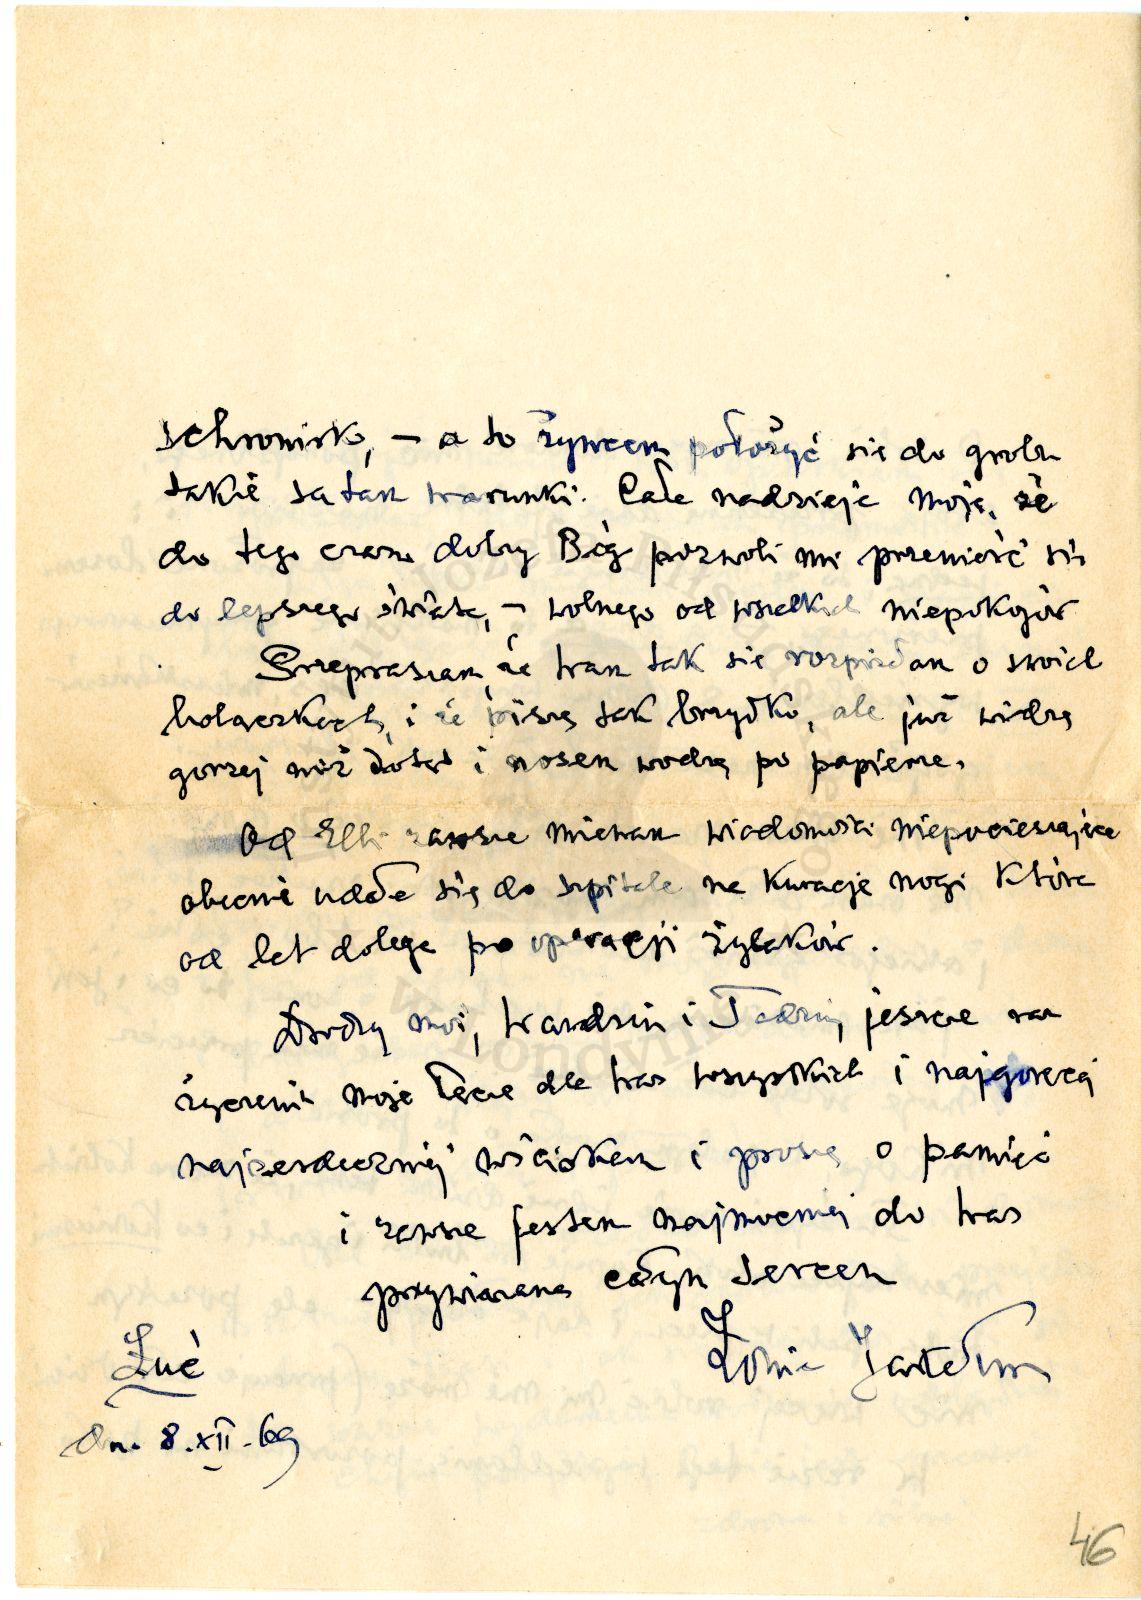 schronisko, – a to żywcem położyć się do grobu
takie są tam warunki. Cała nadzieja moja, że
do tego czasu dobry Bóg pozwoli mi przenieść się
do lepszego świata, – wolnego od wszelkich niepokojów
Przepraszam, że Wam tak się rozpisałam o swoich
bolączkach, i że piszę tak brzydko, ale już widzę
gorzej niż dotąd i nosem wodzę po papierze.
Od Elli zawsze miewam wiadomości niepocieszające
obecnie udała się do szpitala na kurację nogi która
od let dolega po operacji żylaków.
Drodzy moi, Wandziu i Tadziu, jeszcze raz
życzenia moje łączę dla Was wszystkich i najgoręcej
najserdeczniej wściskam i proszę o pamięć
i zawsze jestem najmocniej do Was
przywiązana całym sercem
Zonia
dn. 8.XII.69
46